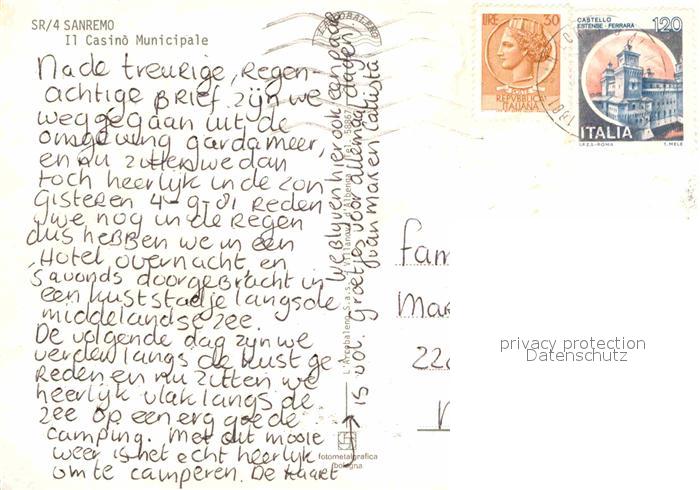 SR/4 SANREMO
Il Casinò Municipale
Na de treurige, regen-
achtige Brief zijn we
weggegaan uit de
omgeving gardameer,
en nu zitten we dan
toch heerlijk in de zon
gisteren 4-9-81 reden
we nog in de regen
dus hebben we in een
Hotel overnacht, en
s'avonds doorgebracht in
een kuststadje langs de
middelandse zee.
De volgende dag zijn we
verder langs de kust ge-
reden en nu zitten we
heerlijk vlak langs de
zee op een erg goede
camping. Met dit mooie
weer is het echt heerlijk
om te camperen. De kaart
is vol. groetjes voor allemaal
van mar en
we blijven hier ook een paar
dagen
L'Arcobaleno S.a.s.
fotometalgrafica
bologna
LIRE 30
POSTE
REPVBBLICA
ITALIANA
CASTELLO
ESTENSE - FERRARA
120
ITALIA
I.P.Z.S.-ROMA T. MELE
fam
Mar
22
privacy protection
Datenschutz